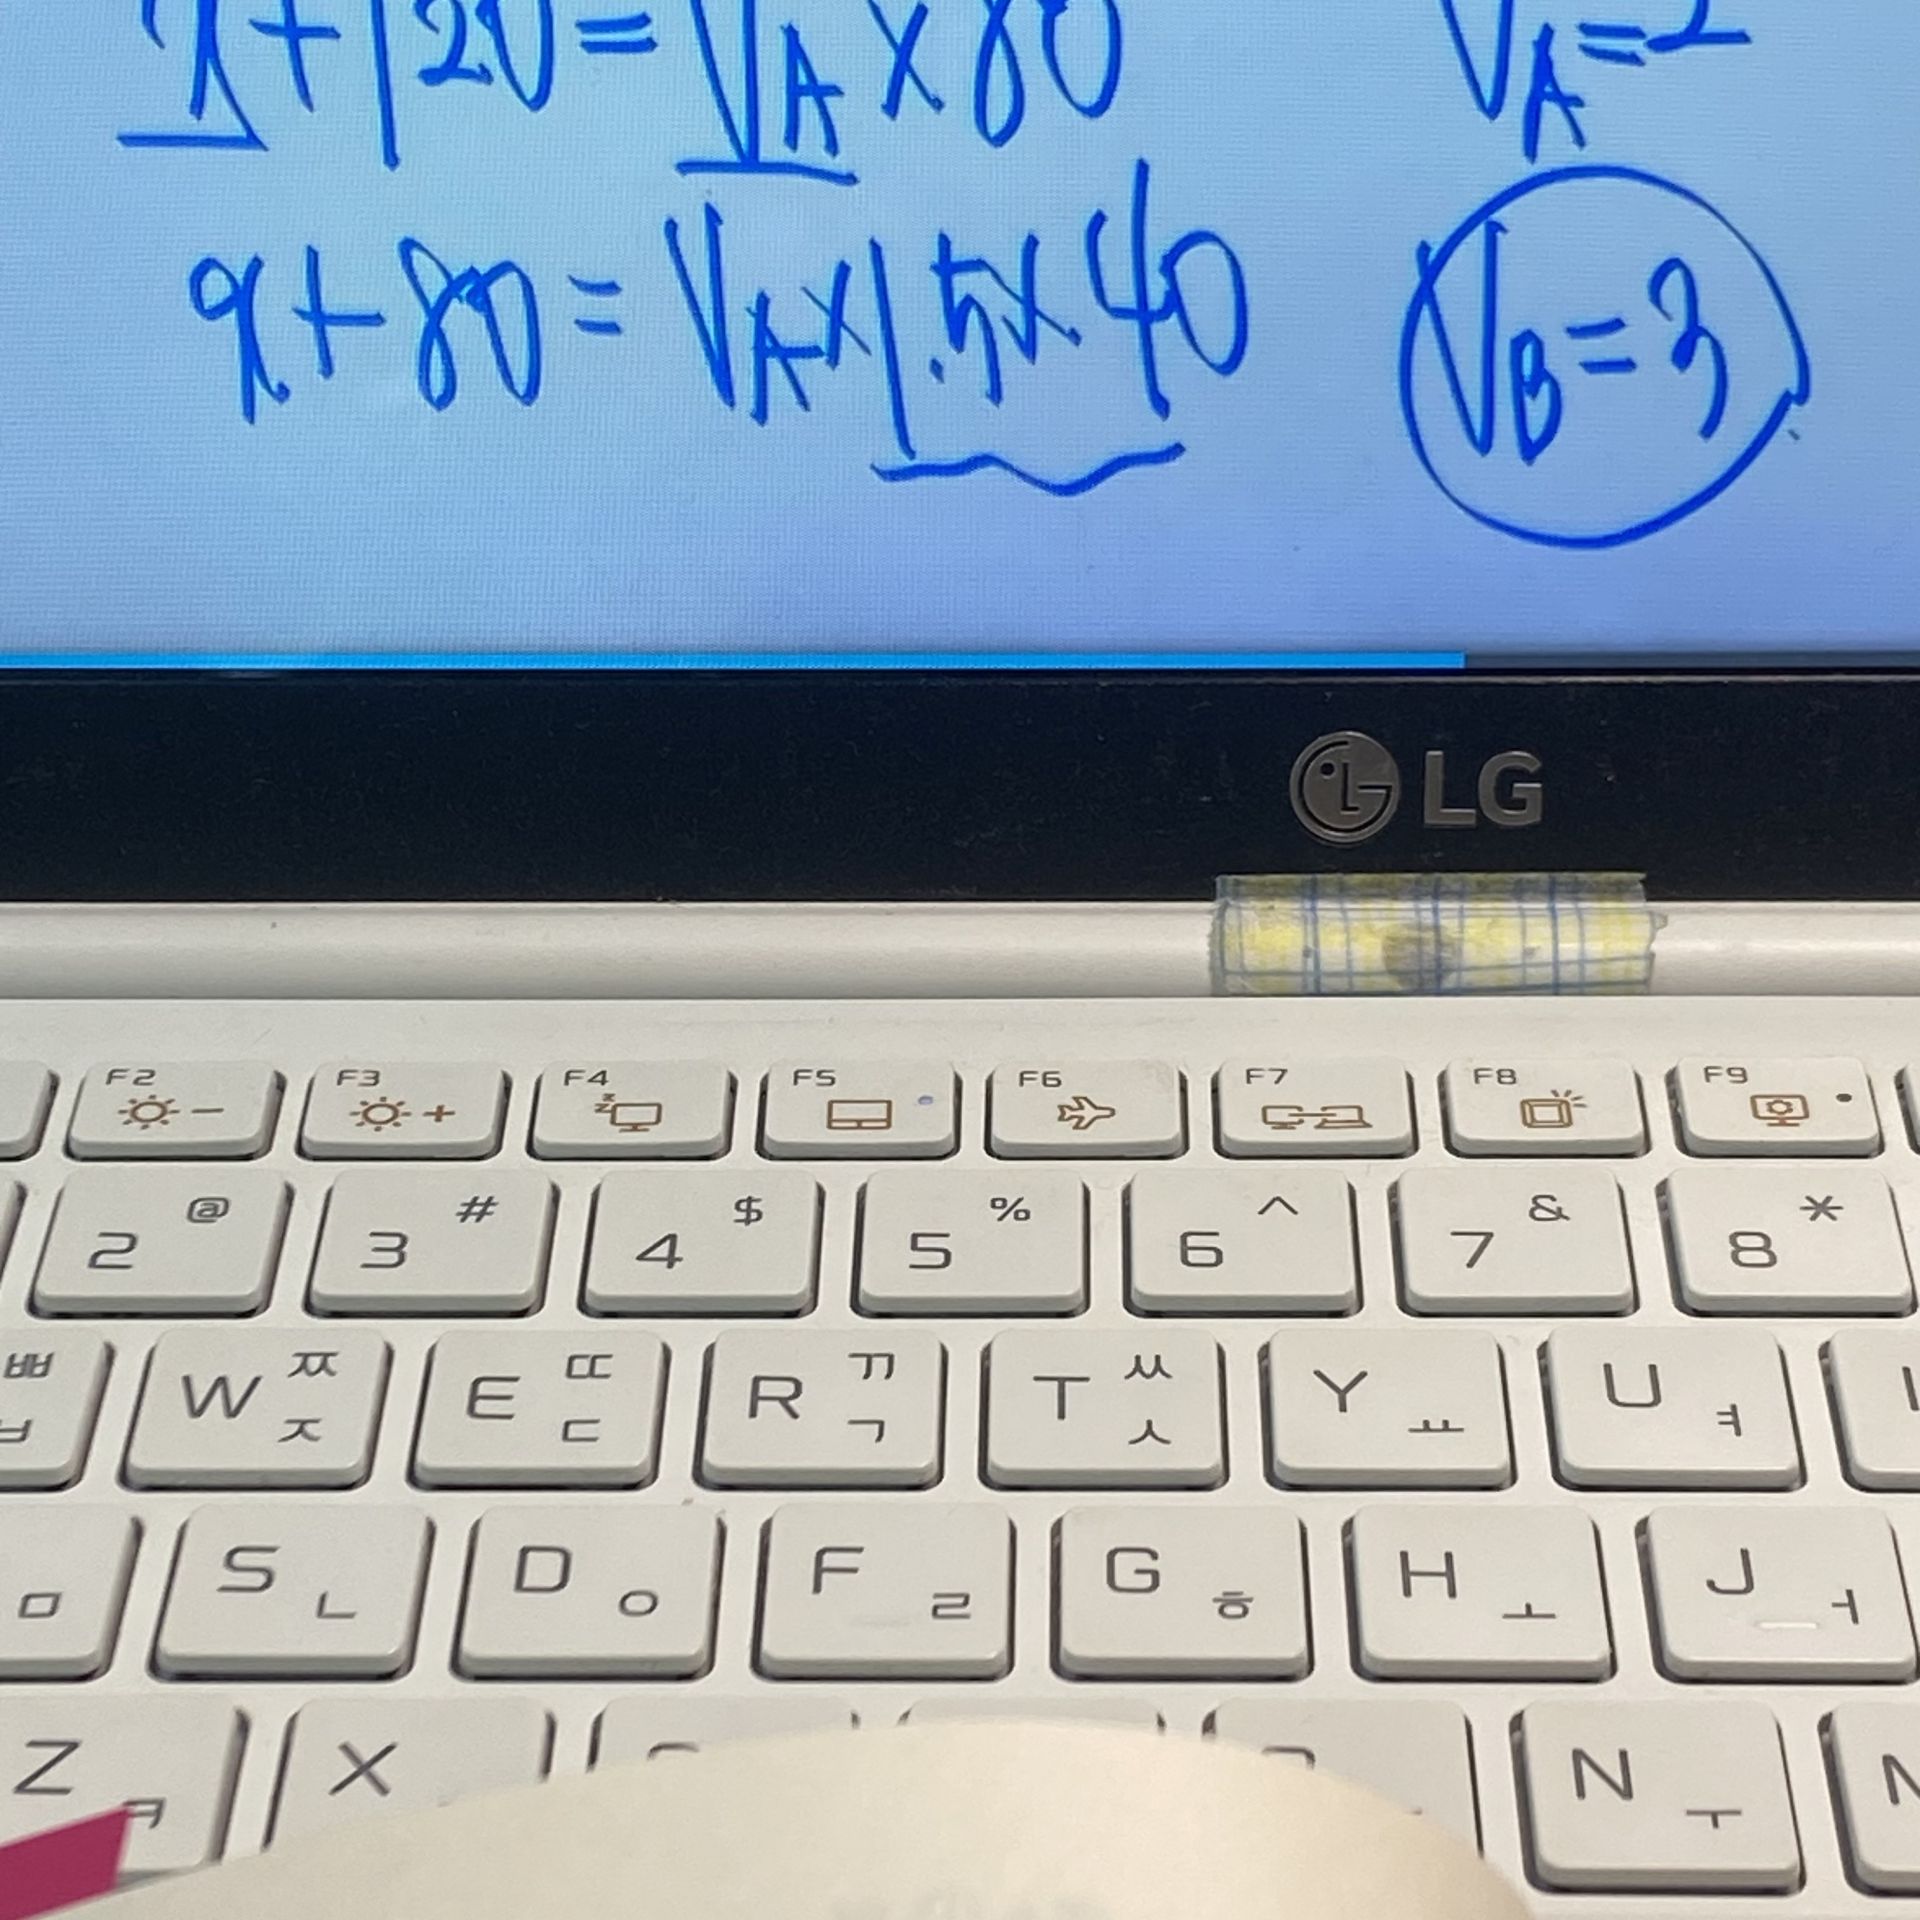 x+120=VA×80 VA=2
x+80=VA×1.5×40 VB=3
LG
F2 F3 F4 F5 F6 F7 F8 F9
2 @ 3 # 4 $ 5 % 6 ^ 7 & 8 *
ㅃ ㅂ W ㅉ ㅈ E ㄸ ㄷ R ㄲ ㄱ T ㅆ ㅅ Y ㅛ U ㅕ
ㅁ S ㄴ D ㅇ F ㄹ G ㅎ H ㅗ J ㅓ
Z ㅋ X N ㅜ